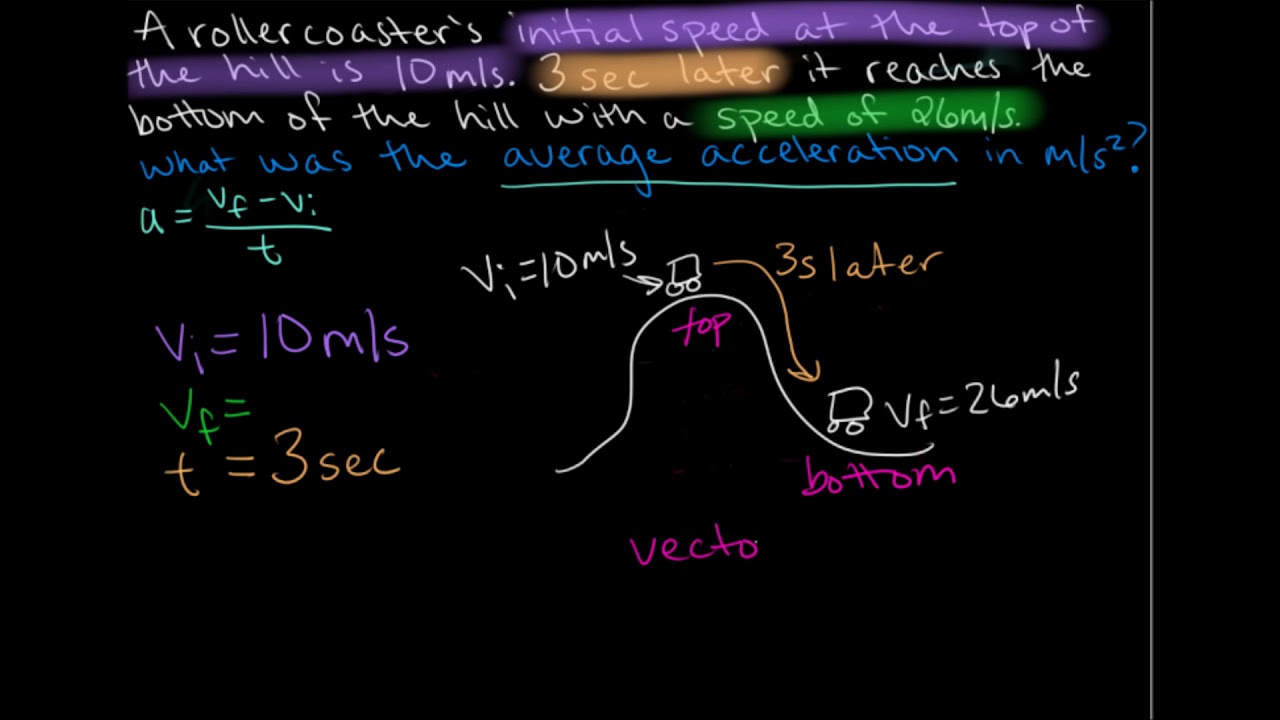 A rollercoaster's initial speed at the top of
the hill is 10 m/s. 3 sec later it reaches the
bottom of the hill with a speed of 26 m/s.
what was the average acceleration in m/s²?
a = vf - vi / t
Vi = 10 m/s
3s later
top
Vi = 10 m/s
Vf =
Vf = 26 m/s
t = 3 sec
bottom
vecto